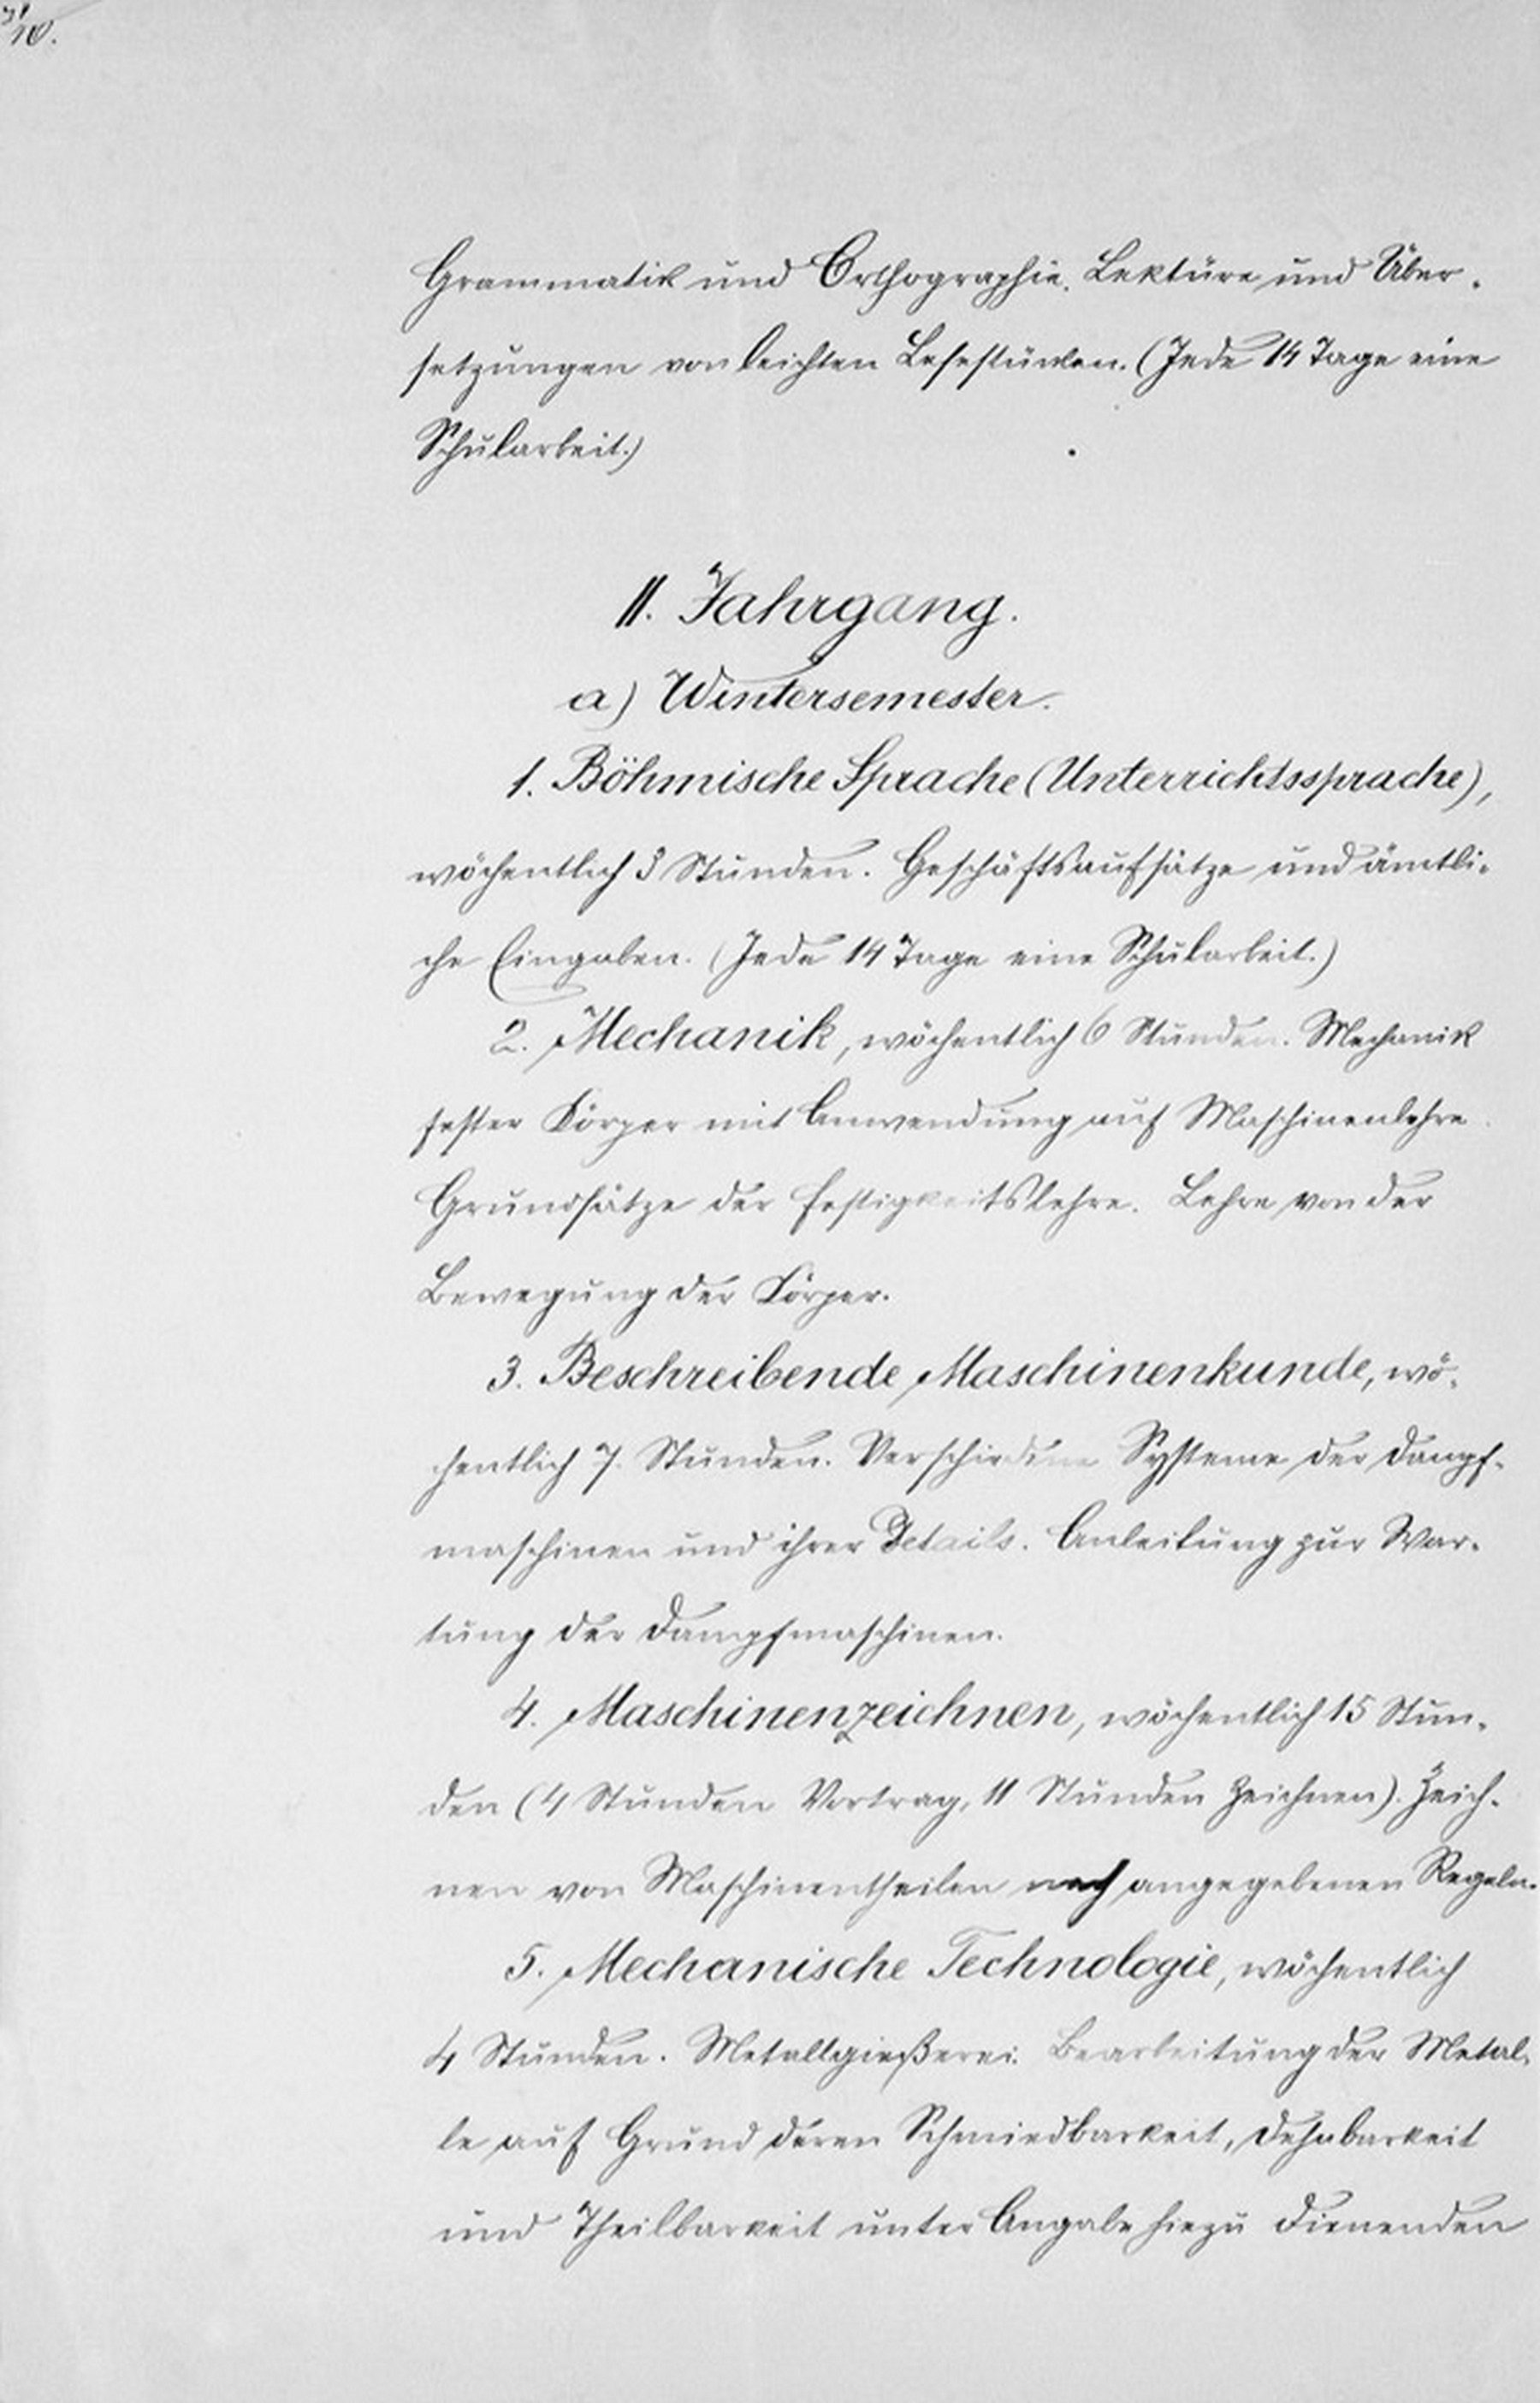 10.
Grammatik und Orthographie. Lektüre und Über-
setzungen von leichten Lesestücken. (Jede 14 Tage eine
Schularbeit.)
II. Jahrgang.
a) Wintersemester.
1. Böhmische Sprache (Unterrichtssprache),
wöchentlich 3 Stunden. Geschäftsaufsätze und ämtli-
che Eingaben. (Jede 14 Tage eine Schularbeit.)
2. Mechanik, wöchentlich 6 Stunden. Mechanik
fester Körper mit Anwendung auf Maschinenlehre.
Grundsätze der Festigkeitslehre. Lehre von der
Bewegung der Körper.
3. Beschreibende Maschinenkunde, wö-
chentlich 7. Stunden. Verschiedene Systeme der Dampf-
maschinen und ihrer Details. Anleitung zur War-
tung der Dampfmaschinen.
4. Maschinenzeichnen, wöchentlich 15 Stun-
den (4 Stunden Vortrag, 11 Stunden Zeichnen). Zeich-
nen von Maschinentheilen nach angegebenen Regeln.
5. Mechanische Technologie, wöchentlich
4 Stunden. Metallgießerei. Bearbeitung der Metal-
le auf Grund deren Schmiedbarkeit, Dehnbarkeit
und Theilbarkeit unter Angabe hiezu dienenden